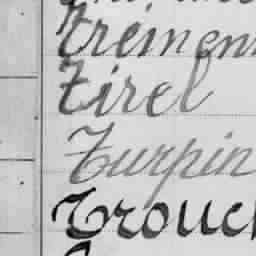 Tremen
Tirel
Turpin
Trouc